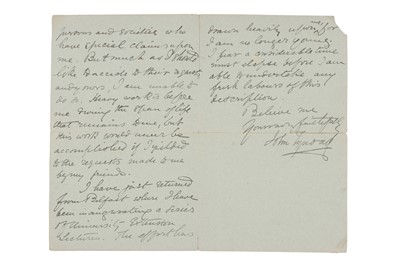 persons and societies who
have special claims upon
me. But much as I should
like to accede to their requests
and yours, I am unable to
do so. Heavy work is before
me during the span of life
that remains to me, but
this work would never be
accomplished if I yielded
to the requests made to me
by my friends.
I have just returned
from Belfast where I have
been inaugurating a series
of University Extension
Lectures. The effort has
drawn heavily upon me, for
I am no longer young,
I fear a considerable time
must elapse before I am
able to undertake any
fresh labours of this
description
Believe me
Yours faithfully
John Tyndall